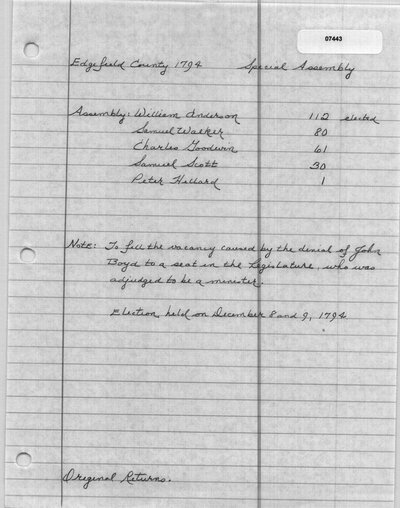 07443
Edgefield County 1794 Special Assembly
Assembly: William Anderson 112 elected
Samuel Walker 80
Charles Goodwin 61
Samuel Scott 30
Peter Hillard 1
Note: To fill the vacancy caused by the denial of John
Boyd to a seat in the Legislature, who was
adjudged to be a minister.
Election held on December 8 and 9, 1794
Original Returns.